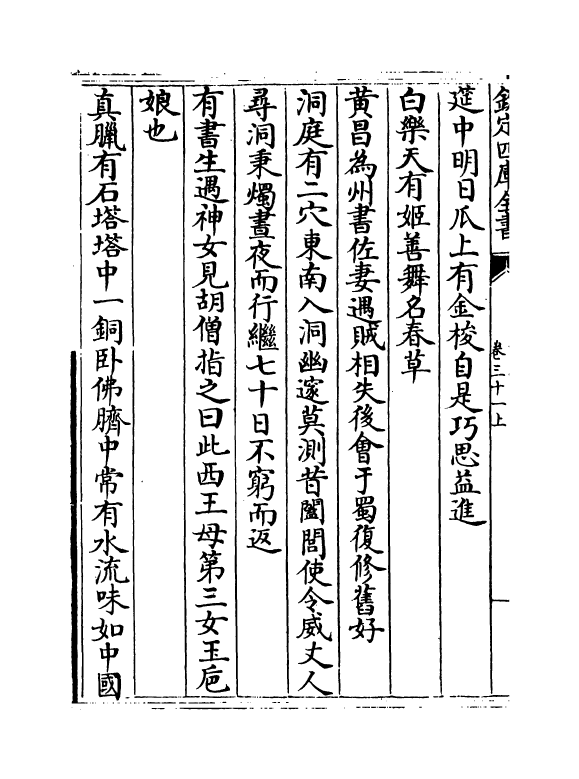 欽定四庫全書
卷三十一上
筵中明日瓜上有金梭自是巧思益進
白樂天有姬善舞名春草
黄昌為州書佐妻遇賊相失後會于蜀復修舊好
洞庭有二穴東南入洞幽邃莫測昔闔閭使令威丈人
尋洞秉燭晝夜而行繼七十日不窮而返
有書生遇神女見胡僧指之曰此西王母第三女玉巵
娘也
真臘有石塔塔中一銅卧佛臍中常有水流味如中國